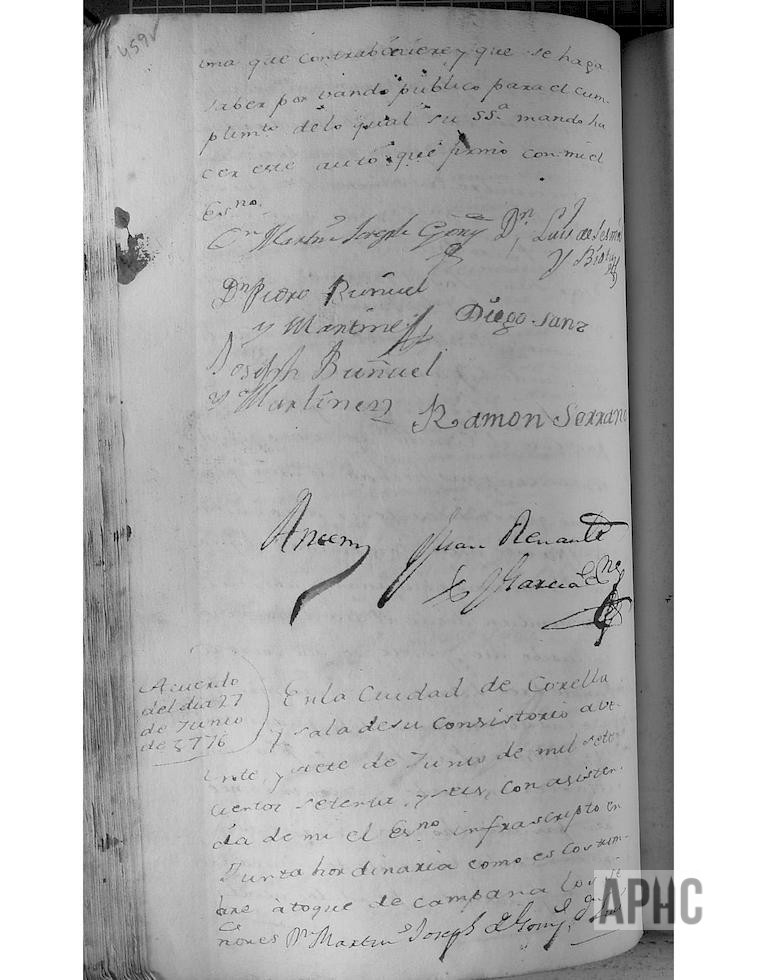 459v
una que contrabiniere y que se haga
saber por vando publico para el cum-
plimto delo qual su SSa mando ha
cer este auto que firmo con mi el
Esno
Dn Martin Joseph Goñy Dn Luis de Sesma
y
Dn Pedro Buñuel
y Martinez Diego Sanz
Joseph Buñuel
y Martinez Ramon Serrano
Antemy Juan Renault
y Garcia Esno
Acuerdo
del dia 27
de Junio
de 1776
En la Ciudad de Corella
y sala de su Consistorio a ve-
inte y siete de Junio de mil sete
cientos setenta y seis, con asisten-
cia de mi el Esno infrascripto en
Junta hordinaria como es costum-
bre a toque de campana los se
ñores Dn Martin Joseph de Goñy Dn Luis
APHC